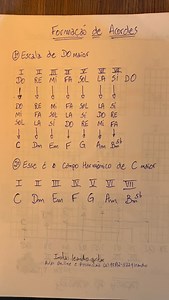 Formação de Acordes
① Escala de DO maior
I II III IV V VI VII
DO RE MI FA SOL LA SI DO
DO RE MI FA SOL LA SI
MI FA SOL LA SI DO RE
SOL LA SI DO RE MI FA
C Dm Em F G Am Bm5b
② Esse é o Campo Harmônico de C maior
I II III IV V VI VII
C Dm Em F G Am Bm5b